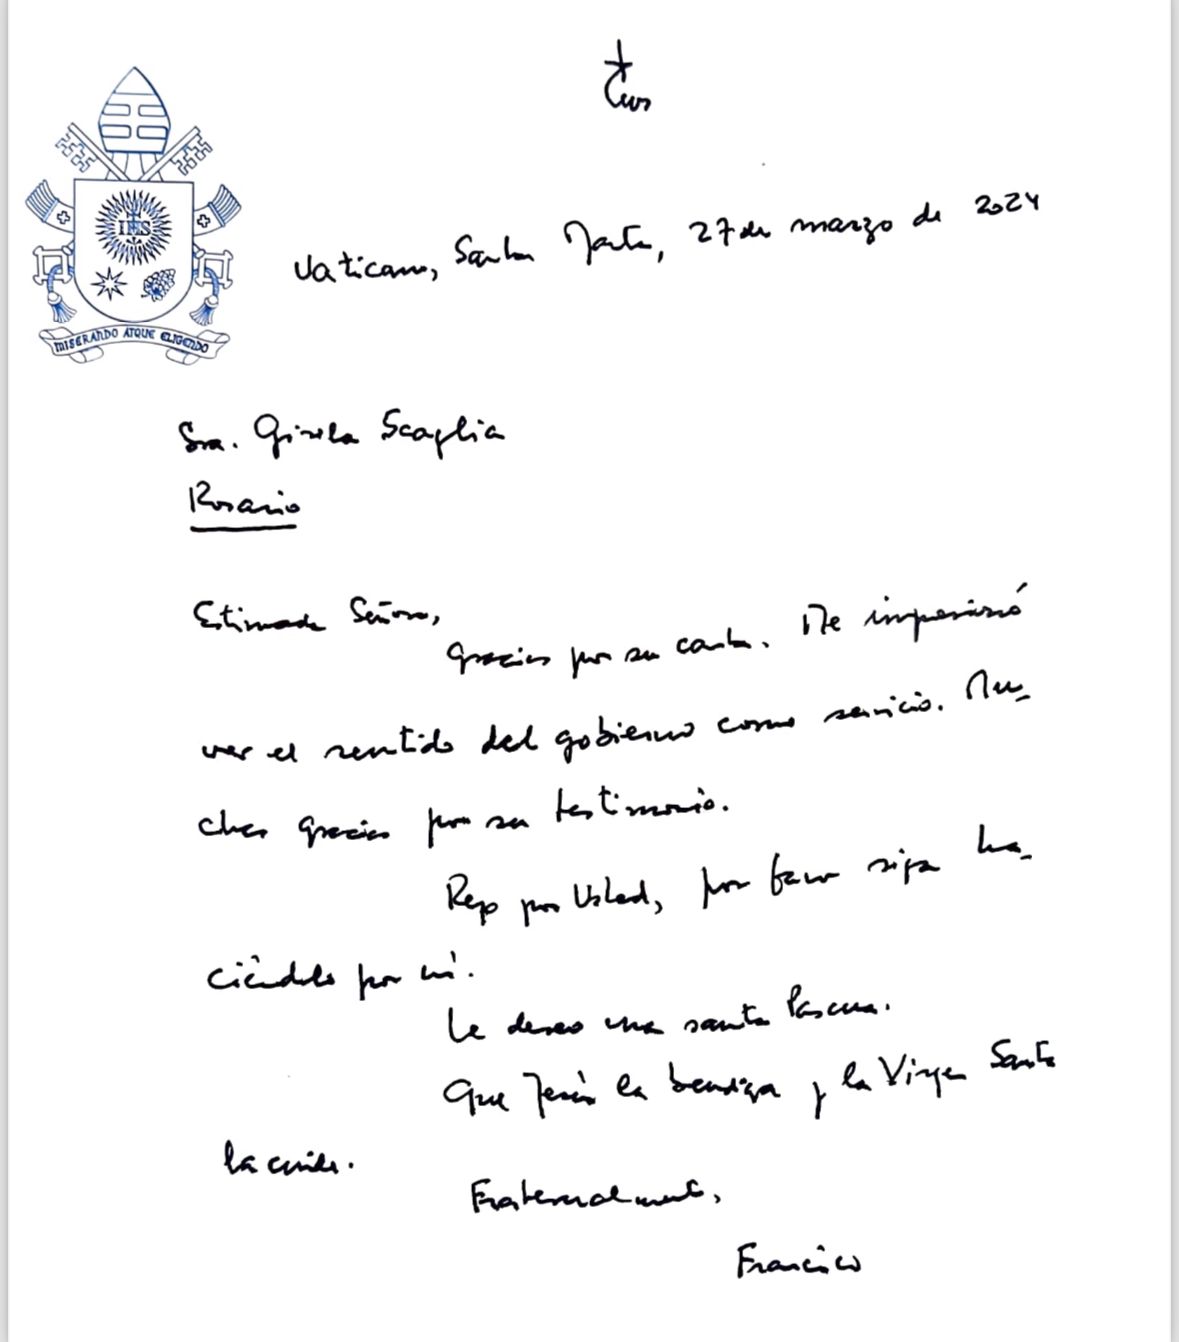 MISERANDO ATQUE ELIGENDO
Vaticano, Santa Marta, 27 de marzo de 2024
Sra. Gisela Scaglia
Rosario
Estimada Señora,
gracias por su carta. Me impresionó
ver el sentido del gobierno como servicio. Mu-
chas gracias por su testimonio.
Rezo por Usted, por favor siga ha-
ciéndolo por mí.
Le deseo una santa Pascua.
Que Jesús la bendiga y la Virgen Santa
la cuide.
Fraternalmente,
Francisco